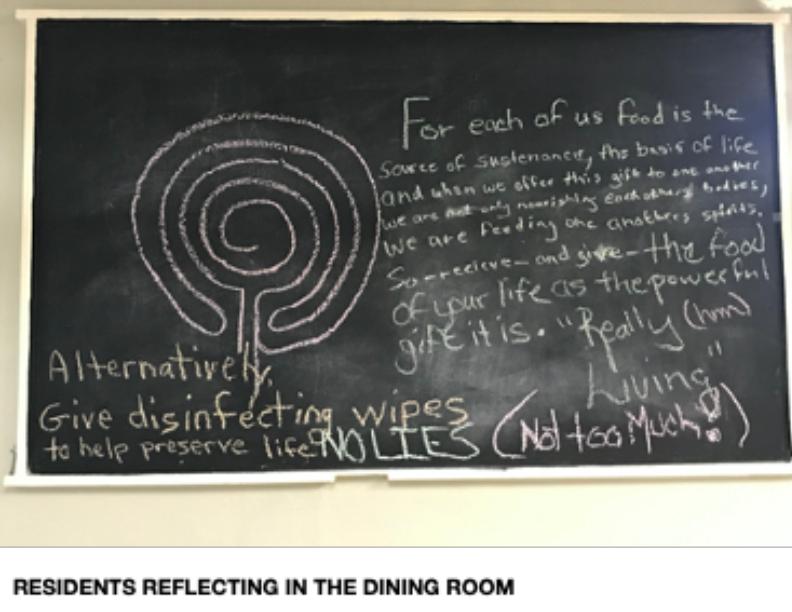 For each of us food is the
source of sustenance, the basis of life
and when we offer this gift to one another
we are not only nourishing each others bodies,
we are feeding one anothers spirits.
So - recieve - and give - the food
of your life as the powerful
gift it is. "Really (hm)
Living"
Alternatively,
Give disinfecting wipes
to help preserve life? NO LIES (Not too Much!)
RESIDENTS REFLECTING IN THE DINING ROOM